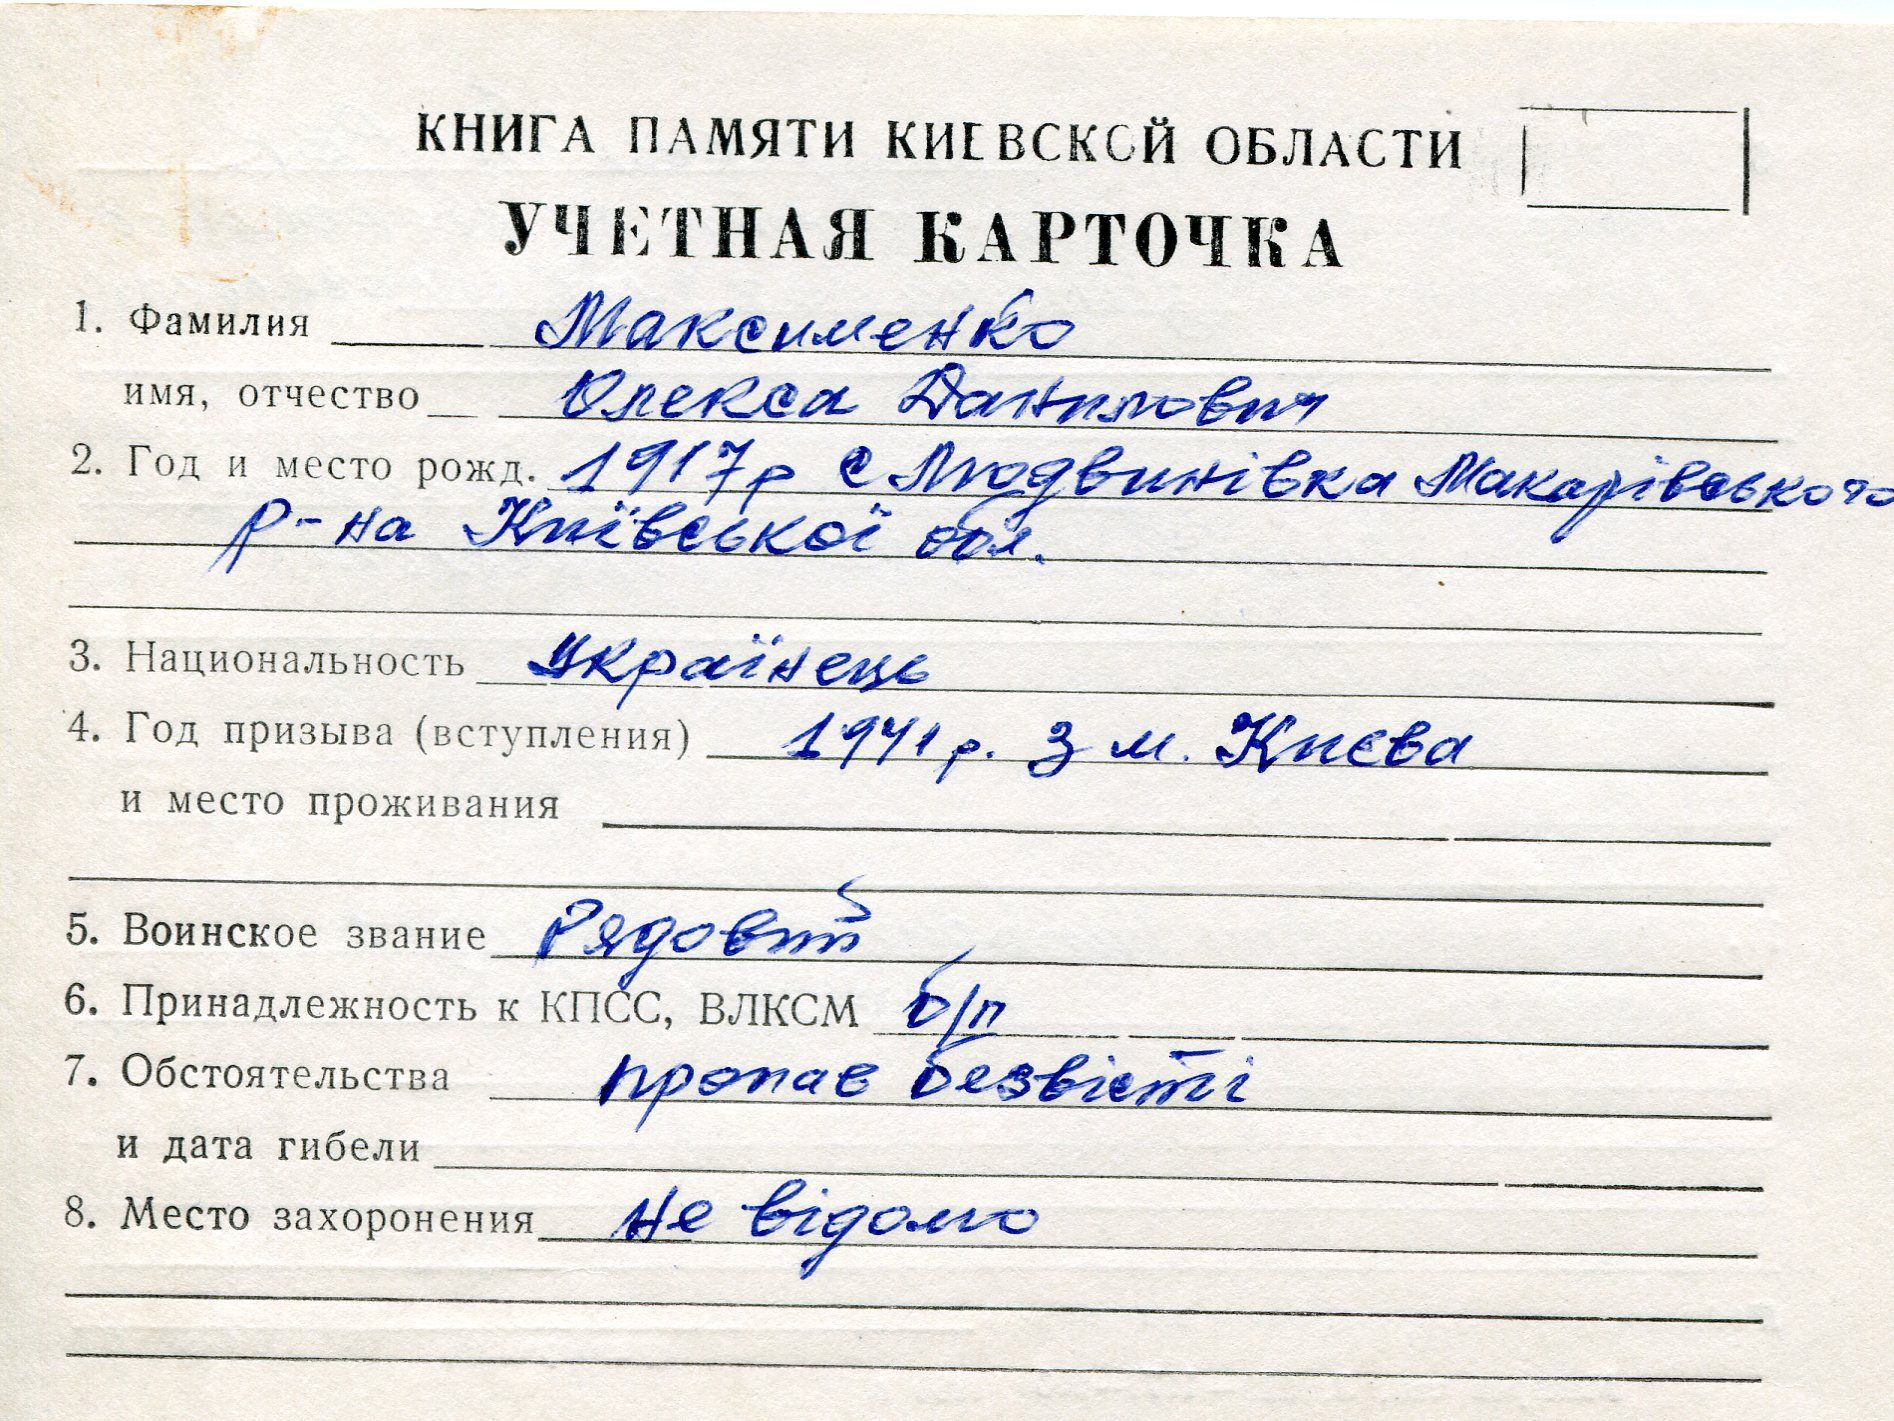 КНИГА ПАМЯТИ КИЕВСКОЙ ОБЛАСТИ
УЧЕТНАЯ КАРТОЧКА
1. Фамилия Максименко
имя, отчество Олекса Данилович
2. Год и место рожд. 1917р с Людвинівка Макарівського
р-на Київської обл.
3. Национальность Українець
4. Год призыва (вступления) 1941р. З м. Києва
и место проживания
5. Воинское звание Рядовий
6. Принадлежность к КПСС, ВЛКСМ б/п
7. Обстоятельства пропав безвісті
и дата гибели
8. Место захоронения не відомо